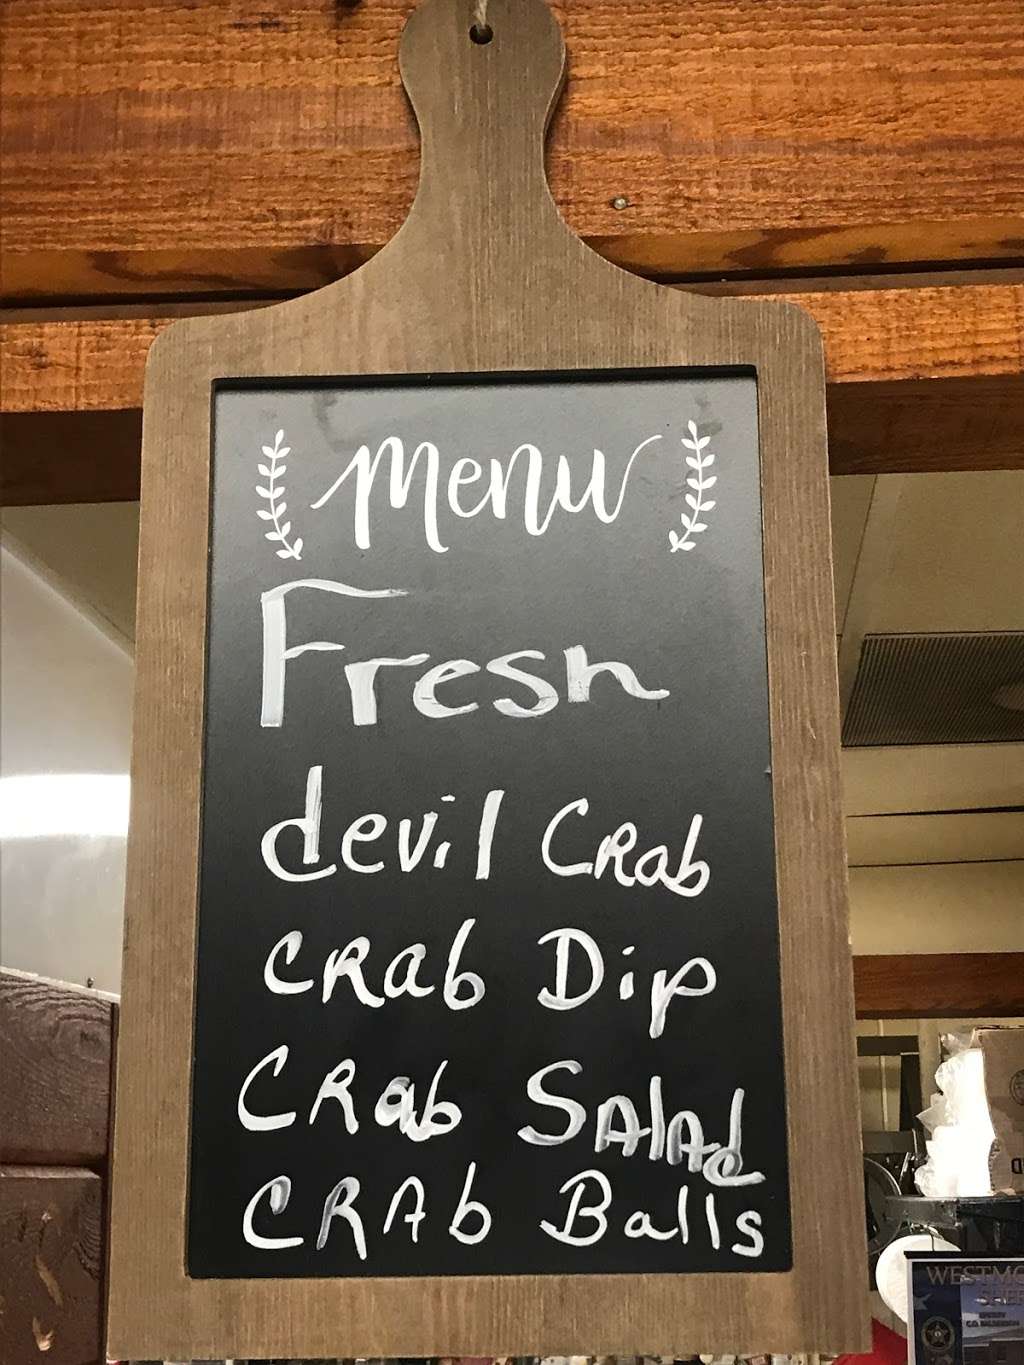 menu
Fresh
devil CRab
CRab Dip
CRab SAlAd
CRAb Balls
WESTMO
SHER